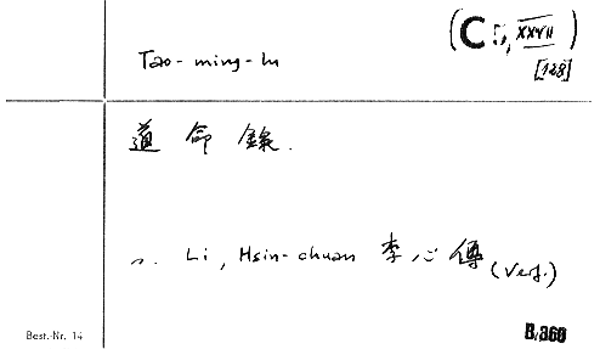 (C 5, XXVII)
[128]
Tao-ming-lu
道命錄.
n. Li, Hsin-chuan 李心傳 (Verf.)
Best.-Nr. 14
B/360